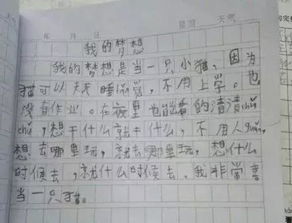 年 月 日 星期 天气
我的梦想
我的梦想是当一只小猫，因为
猫可以天天睡懒觉，不用上学。也
没有作业。在夜里也能看的清清chǔ
chǔ，想干什么就干什么，不用人guǎn，
想去哪里玩，就去哪里玩，想什么
时候去，就什么时候去。我非常喜
当一只猫。